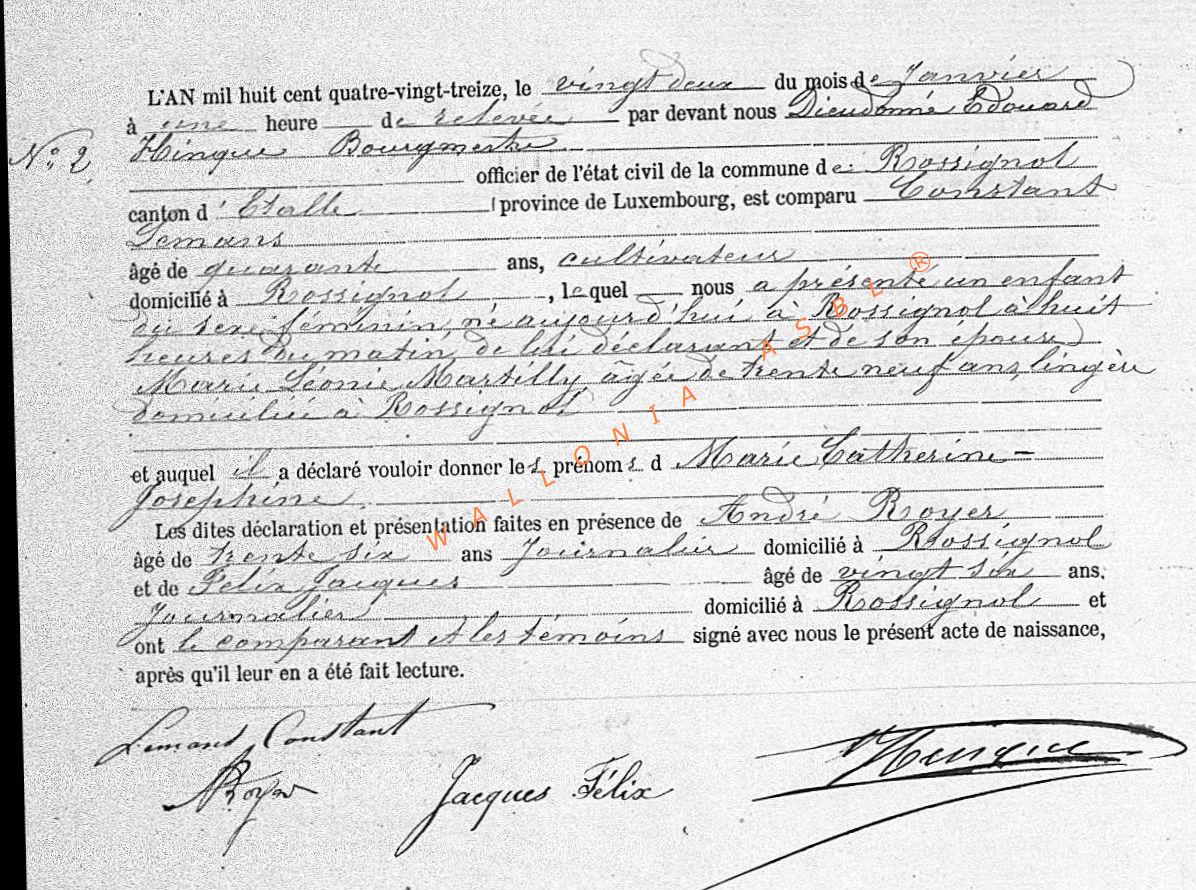 L'AN mil huit cent quatre-vingt-treize, le vingt deux du mois de Janvier
à une heure de relevée par devant nous Dieudonné Edouard
N° 2. Hinque Bourgmestre
officier de l'état civil de la commune de Rossignol
canton d'Etalle province de Luxembourg, est comparu Constant
Lemans
âgé de quarante ans, cultivateur
domicilié à Rossignol, lequel nous a présenté un enfant
du sexe féminin, né aujourd'hui à Rossignol à huit
heures du matin, de lui déclarant et de son épouse
Marie Léonie Martilly, âgée de trente neuf ans, lingère
domiciliée à Rossignol
et auquel il a déclaré vouloir donner les prénoms d Marie Catherine-
Joséphine
Les dites déclaration et présentation faites en présence de André Royer
âgé de trente six ans Journalier domicilié à Rossignol
et de Félix Jacques âgé de vingt six ans.
Journalier domicilié à Rossignol et
ont le comparant et les témoins signé avec nous le présent acte de naissance,
après qu'il leur en a été fait lecture.
Lemans Constant
ARoyer
Jacques Félix
Hinque
WALLONIA ASBL ®